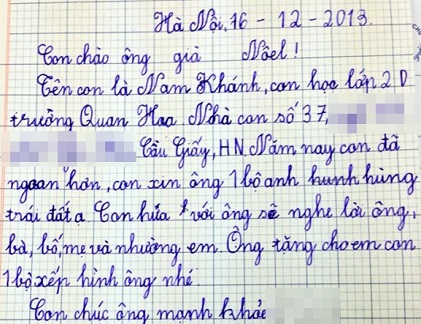 Hà Nội, 16 - 12 - 2013.
Con chào ông già Nôel!
Tên con là Nam Khánh, con học lớp 2D
trường Quan Hoa Nhà con số 37,
Cầu Giấy, HN. Năm nay con đã
ngoan hơn, con xin ông 1 bộ anh hùng
trái đất ạ Con hứa với ông sẽ nghe lời ông,
bà, bố, mẹ và nhường em. Ông tặng cho em con
1 bộ xếp hình ông nhé.
Con chúc ông mạnh khỏe